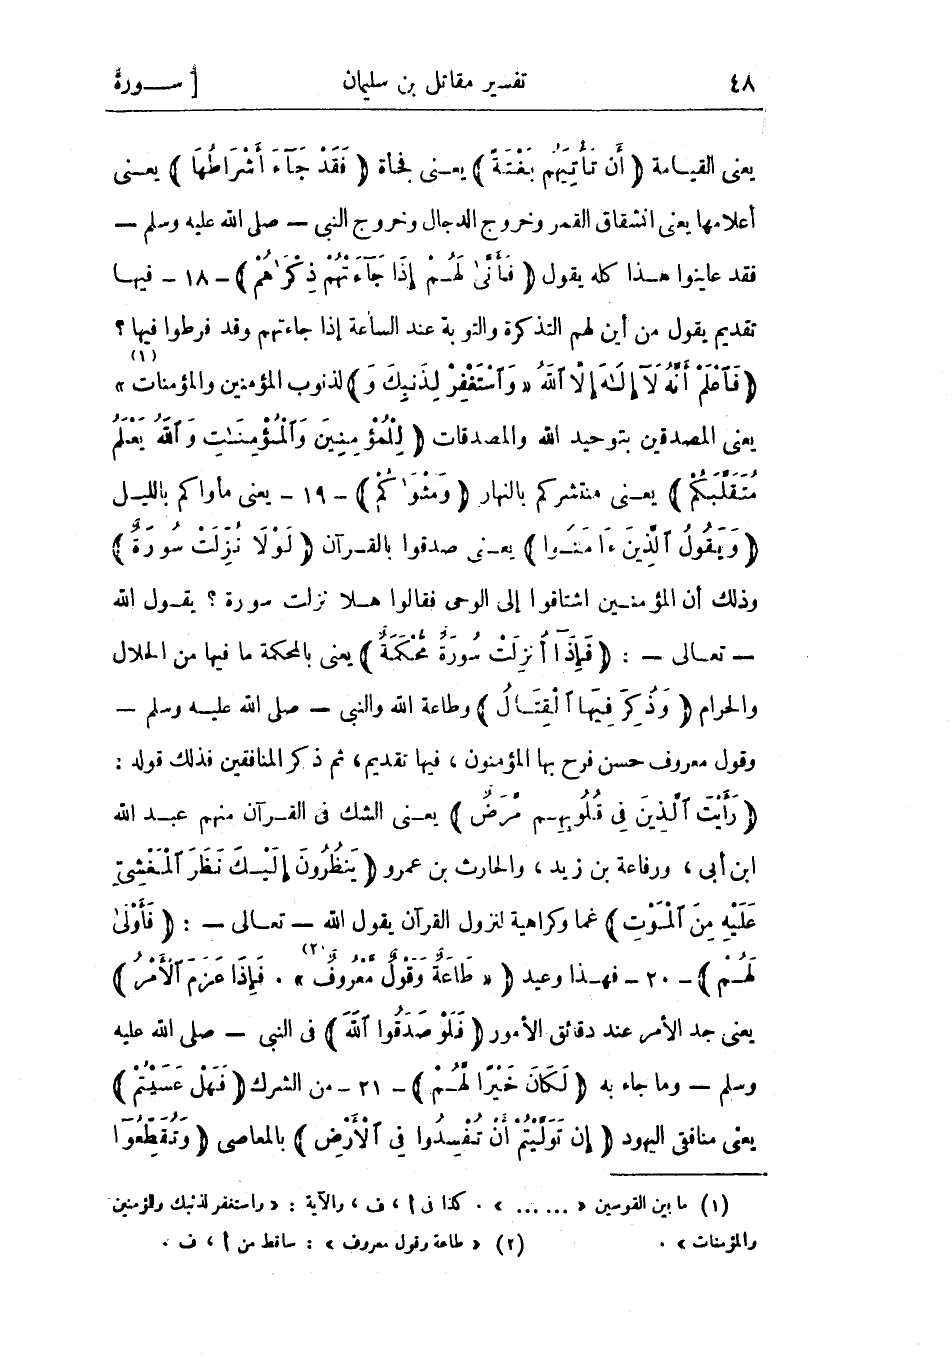 ٤٨ تفسير مقاتل بن سليمان [ ســـورة
يعنى القيــامة ( أَن تَأْتِيَهُم بَغْتَةً ) يعــنى فجأة ( فَقَدْ جَآءَ أَشْرَاطُهَا ) يعــنى
أعلامها يعنى انشقاق القمر وخروج الدجال وخروج النبى — صلى الله عليه وسلم —
فقد عاينوا هــذا كله يقول ( فَأَنَّىٰ لَهُــمْ إِذَا جَآءَتْهُمْ ذِكْرَاهُمْ ) – ١٨ – فيهــا
تقديم يقول من أين لهم التذكرة والتوبة عند الساعة إذا جاءتهم وقد فرطوا فيها ؟
( فَٱعْلَمْ أَنَّهُ لَآ إِلَـٰهَ إِلَّا ٱللَّهُ « وَٱسْتَغْفِرْ لِذَنبِكَ وَ ) لذنوب المؤمنين والمؤمنات » (١)
يعنى المصدقين بتوحيد الله والمصدقات ( لِلْمُؤْمِنِينَ وَٱلْمُؤْمِنَـٰتِ وَٱللَّهُ يَعْلَمُ
مُتَقَلَّبَكُمْ ) يعــنى منتشركم بالنهار ( وَمَثْوَاكُمْ ) – ١٩ – يعنى مأواكم بالليــل
( وَيَقُولُ ٱلَّذِينَ ءَامَنُــوا ) يعــنى صدقوا بالقــرآن ( لَوْلَا نُزِّلَتْ سُورَةٌ )
وذلك أن المؤمنــين اشتاقوا إلى الوحى فقالوا هــلا نزلت سورة ؟ يقــول الله
— تعــالى — : ( فَإِذَآ أُنزِلَتْ سُورَةٌ مُحْكَمَةٌ ) يعنى بالمحكمة ما فيها من الحلال
والحرام ( وَذُكِرَ فِيهَا ٱلْقِتَــالُ ) وطاعة الله والنبى — صلى الله عليــه وسلم —
وقول معروف حسن فرح بها المؤمنون ، فيها تقديم، ثم ذكر المنافقين فذلك قوله :
( رَأَيْتَ ٱلَّذِينَ فِى قُلُوبِهِــم مَّرَضٌ ) يعــنى الشك فى القــرآن منهم عبــد الله
ابن أبى ، ورفاعة بن زيد ، والحارث بن عمرو ( يَنظُرُونَ إِلَيْــكَ نَظَرَ ٱلْمَغْشِىِّ
عَلَيْهِ مِنَ ٱلْمَوْتِ ) غما وكراهية لنزول القرآن يقول الله — تعــالى — : ( فَأَوْلَىٰ
لَهُــمْ ) – ٢٠ – فهــذا وعيد ( « طَاعَةٌ وَقَوْلٌ مَّعْرُوفٌ » (٢) . فَإِذَا عَزَمَ ٱلْأَمْرُ )
يعنى جد الأمر عند دقائق الأمور ( فَلَوْ صَدَقُوا ٱللَّهَ ) فى النبى — صلى الله عليه
وسلم — وما جاء به ( لَكَانَ خَيْرًا لَّهُــمْ ) – ٢١ – من الشرك ( فَهَلْ عَسَيْتُمْ )
يعنى منافقى اليهود ( إِن تَوَلَّيْتُمْ أَنْ تُفْسِدُوا فِى ٱلْأَرْضِ ) بالمعاصى ( وَتُقَطِّعُوٓا
(١) ما بين القوسين « ...... » . كذا فى أ ، ف ، والآية : « واستغفر لذنبك وللمؤمنين
والمؤمنات » . (٢) « طاعة وقول معروف » : ساقط من أ ، ف .